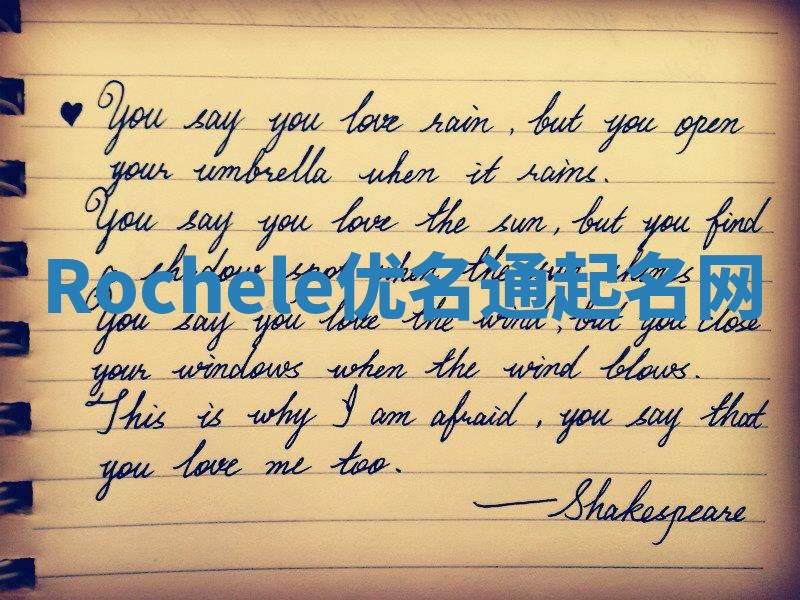 ♥ You say you love rain, but you open
your umbrella when it rains.
You say you love the sun, but you find
a shadow spot when the sun shines
Rochele优名通起名网
You say you love the wind, but you close
your windows when the wind blows.
This is why I am afraid, you say that
you love me too.
—Shakespeare